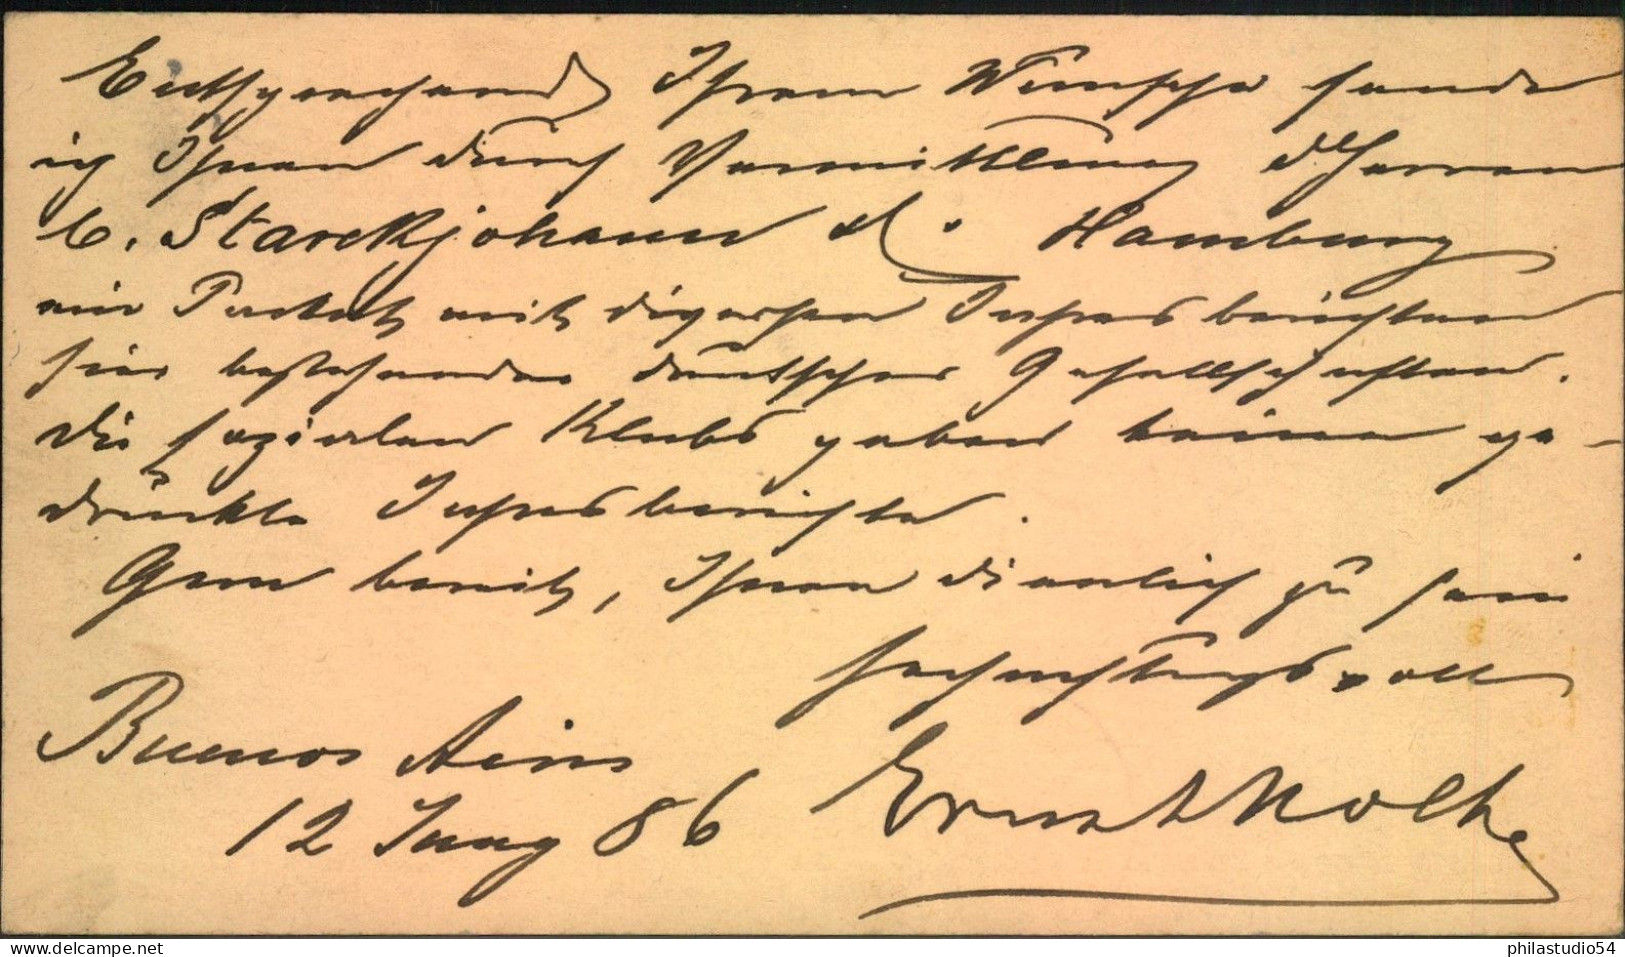 Entsprechend Ihrem Wunsche sende
ich Ihnen durch Vermittlung d Herren
C. Starckjohann & Co. Hamburg
ein Packet mit diversen Jahresberichten
hier bestehender deutscher Gesellschaften.
Die sozialen Klubs geben keine ge-
druckte Jahresberichte.
Gern bereit, Ihnen dienlich zu sein
hochachtungsvoll
Buenos Aires
12 Juny 86
Ernst Nolte
philastudio54